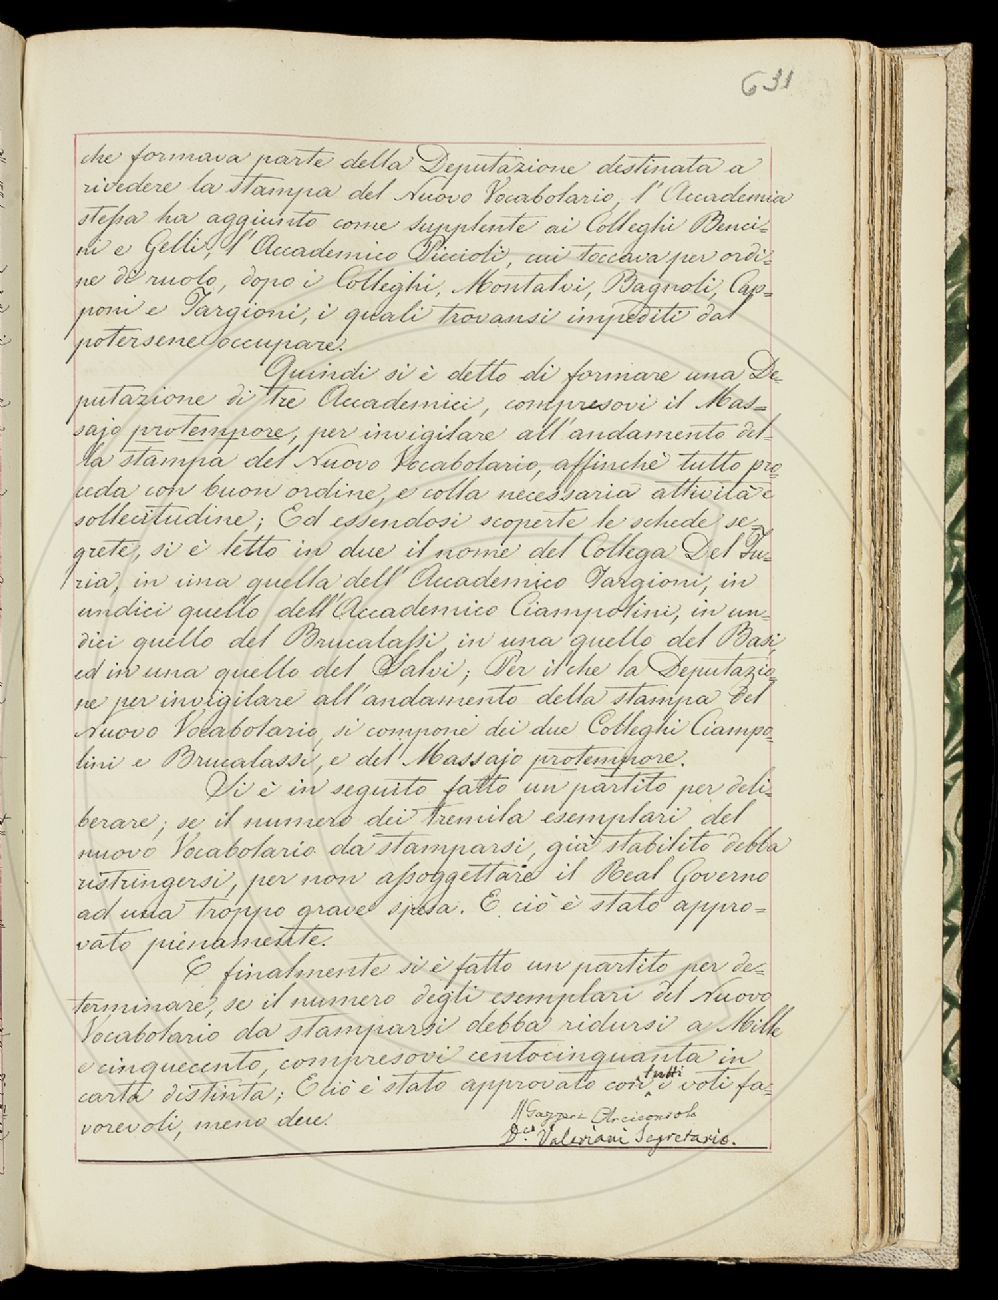 631
che formava parte della Deputazione destinata a
rivedere la stampa del Nuovo Vocabolario, l'Accademia
stessa ha aggiunto come supplente ai Colleghi Benci-
ni e Gelli, l'Accademico Piccioli, cui toccava per ordi-
ne di ruolo, dopo i Colleghi, Montalvi, Bagnoli, Cap-
poni e Targioni, i quali trovansi impediti dal
potersene occupare.
Quindi si è detto di formare una De-
putazione di tre Accademici, compresovi il Mas-
sajo protempore, per invigilare all'andamento del-
la stampa del Nuovo Vocabolario, affinchè tutto pro-
ceda con buon ordine, e colla necessaria attività e
sollecitudine; Ed essendosi scoperte le schede se-
grete, si è letto in due il nome del Collega Del Fu-
ria, in una quella dell'Accademico Targioni, in
undici quello dell'Accademico Ciampolini, in un-
dici quello del Brucalassi in una quello del Basi,
ed in una quello del Salvi; Per il che la Deputazio-
ne per invigilare all'andamento della stampa del
Nuovo Vocabolario, si compone dei due Colleghi Ciampo-
lini e Brucalassi, e del Massajo protempore.
Si è in seguito fatto un partito per deli-
berare; se il numero dei tremila esemplari del
nuovo Vocabolario da stamparsi, già stabilito debba
ristringersi, per non assoggettare il Real Governo
ad una troppo grave spesa. E ciò è stato appro-
vato pienamente.
E finalmente si è fatto un partito per de-
terminare, se il numero degli esemplari del Nuovo
Vocabolario da stamparsi debba ridursi a Mille
e cinquecento, compresovi centocinquanta in
carta distinta; E ciò è stato approvato con tutti i voti fa-
vorevoli, meno due.
Gazzeri Arciconsolo
Valeriani Segretario.